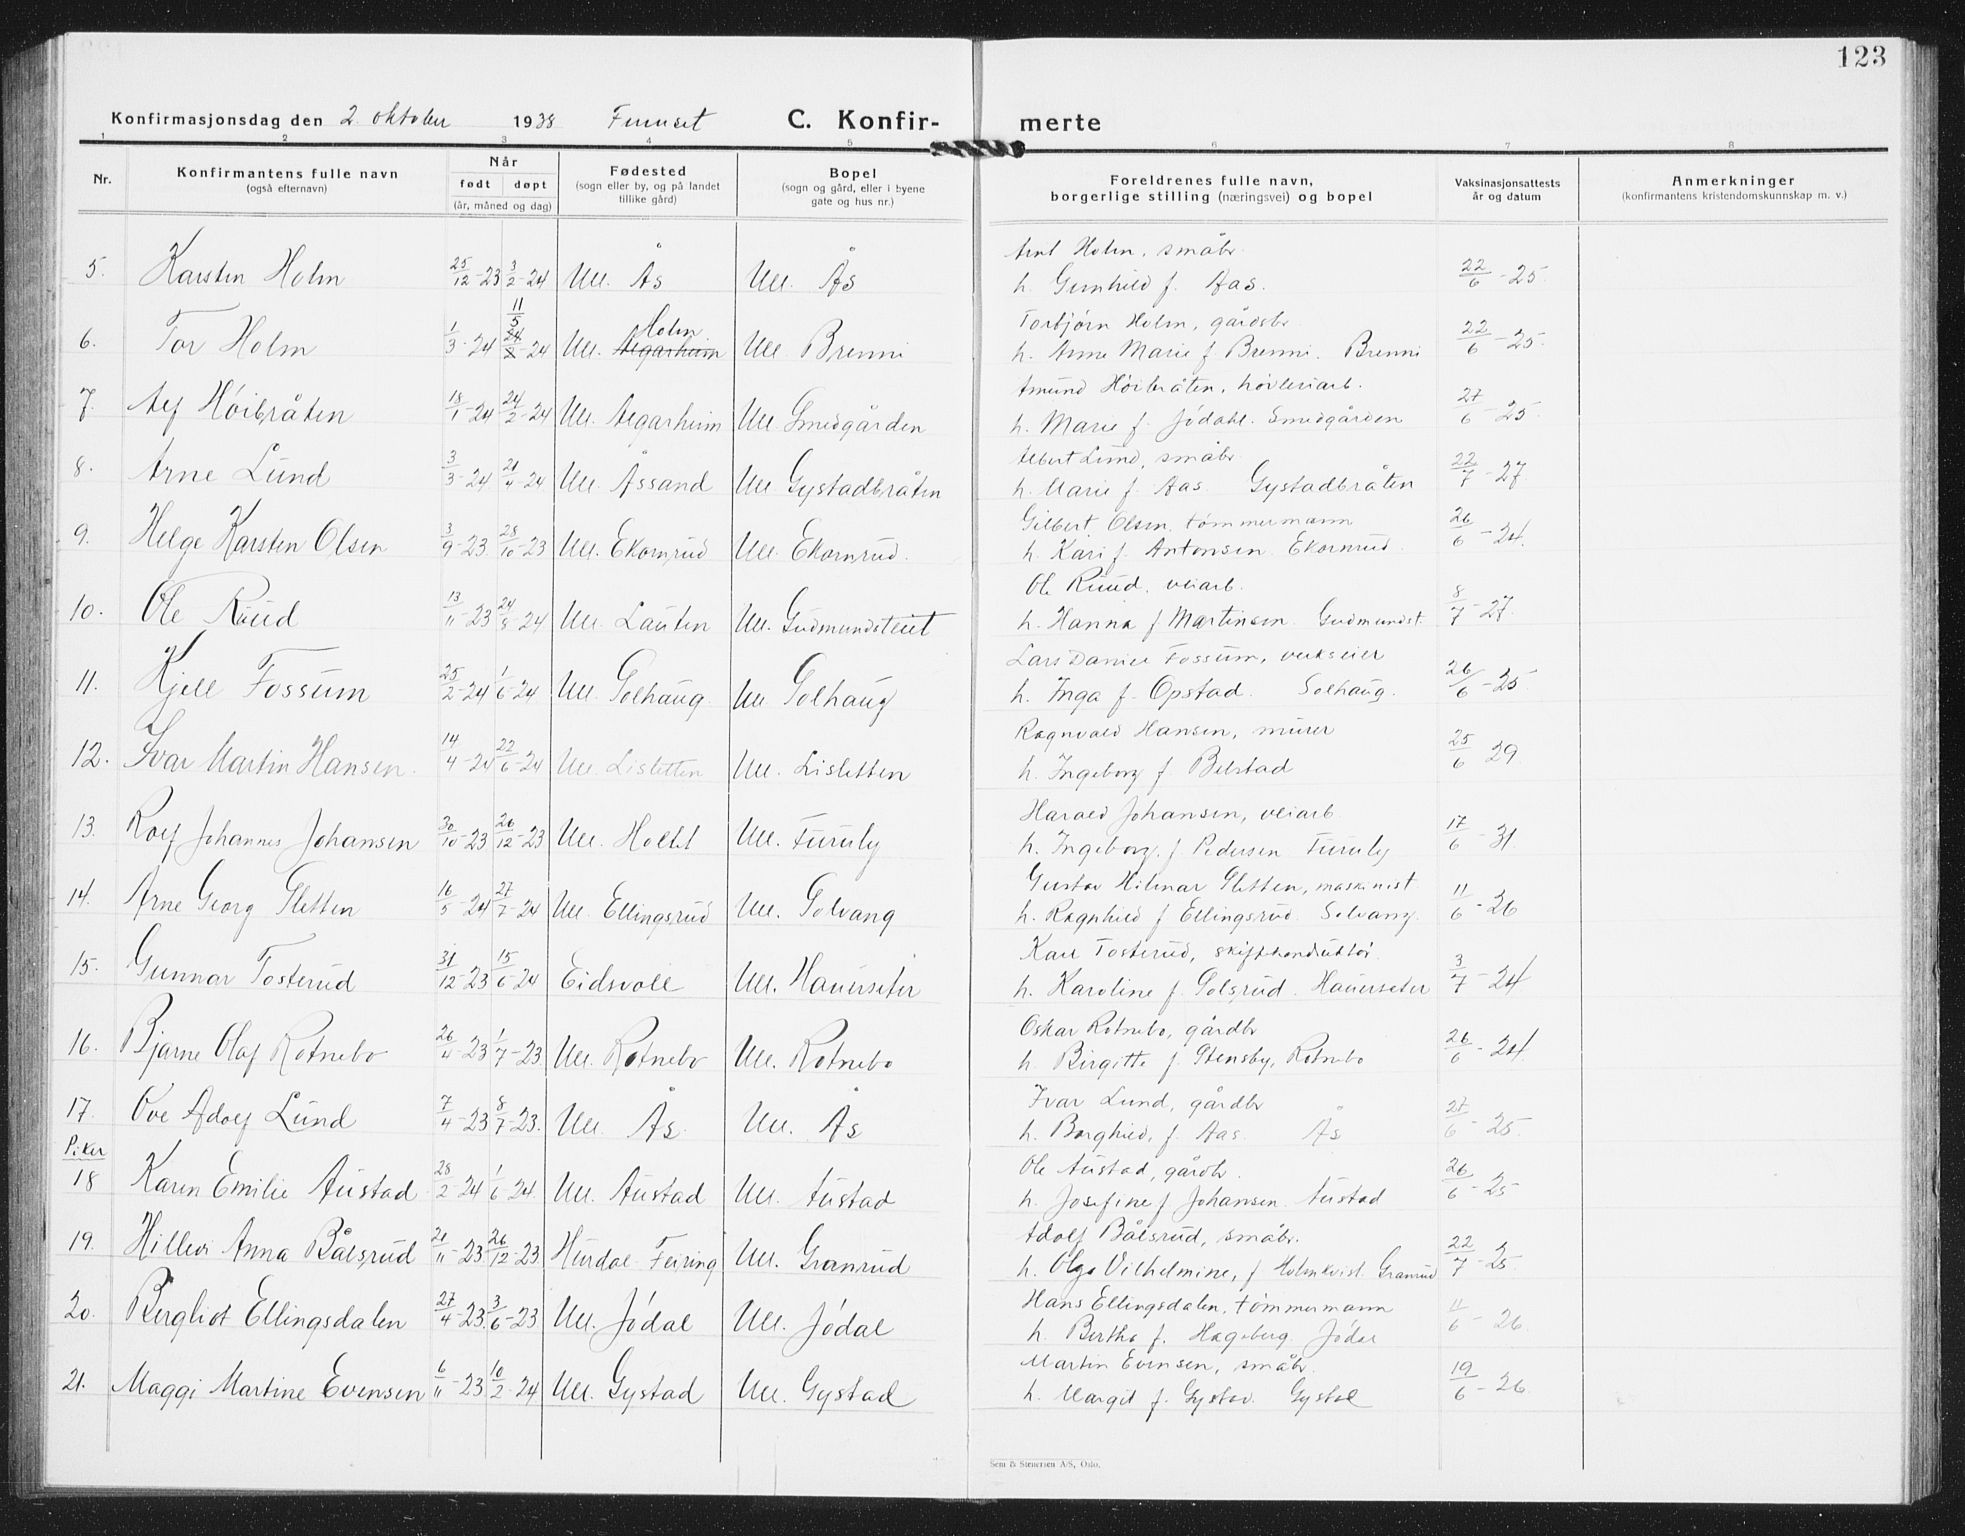 123
Konfirmasjonsdag den 2. oktober 1938 Furuset C. Konfir- merte
1 2 3 4 5 6 7 8
Nr.
Konfirmantens fulle navn
(også efternavn)
Når
født døpt
(år, måned og dag)
Fødested
(sogn eller by, og på landet
tillike gård)
Bopel
(sogn og gård, eller i byene
gate og hus nr.)
Foreldrenes fulle navn,
borgerlige stilling (næringsvei) og bopel
Vaksinasjonsattests
år og datum
Anmerkninger
(konfirmantens kristendomskunnskap m. v.)
Holm, småbr.
5. Karsten Holm 25/12-23 3/2-24 Ull. Ås Ull. Ås h. Gunhild f. Aas. 22/6-25
11/5
Holm Torbjørn Holm, gårdsbr.
6. Tor Holm 1/3-24 24/8-24 Ull. Algarheim Ull. Brenni h. Anne Marie f. Brenni. Brenni 22/6-25
Amund Höibråten, høvleriarb.
7. Alf Höibråten 18/1-24 24/2-24 Ull. Algarheim Ull. Smedgården h. Marie f. Jödahl. Smedgården 27/6-25
Albert Lund, småbr.
8. Arne Lund 3/3-24 21/4-24 Ull. Åssand Ull. Gystadbråten h. Marie f. Aas. Gystadbråten 22/7-27
Gilbert Olsen tömmermann
9. Helge Karsten Olsen 3/9-23 28/10-23 Ull. Ekornrud Ull. Ekornrud. h. Kari f. Antonsen Ekornrud. 26/6-24
Ole Ruud, veiarb.
10. Ole Ruud 13/11-23 24/8-24 Ull. Lauten Ull. Gudmundsteiet h. Hanna f Martinsen Gudmundst. 8/7-27.
Lars Daniel Fossum, verkseier
11. Kjell Fossum 25/2-24 1/6-24 Ull. Solhaug Ull Solhaug h. Inga f. Opstad. Solhaug. 26/6-25
Ragnvald Hansen, murer
12. Ivar Martin Hansen. 14/4-24 22/6-24 Ull. Lisletten Ull. Lisletten h. Ingeborg f. Belstad 25/6 29
Harald Johansen, veiarb.
13. Rolf Johannes Johansen 30/10-23 26/12-23 Ull. Holtet Ull. Furuly h. Ingeborg. f. Pedersen Furuly 17/6-31.
Gustav Hilmar Sletten, maskinist
14. Arne Georg Sletten 16/5-24 27/7-24 Ull. Ellingsrud Ull. Solvang h. Ragnhild f Ellingsrud. Solvang. 11/6-26
Karl Tosterud,
15. Gunnar Tosterud 31/12-23 15/6-24 Eidsvoll Ull. Hauerseter h. Karoline f. Solsrud. Hauerseter 3/7-24
Oskar Rotnebo, gårdbr
16. Bjarne Olaf Rotnebo 26/4-23 1/7-23. Ull. Rotnebo Ull. Rotnebo h. Birgitte f. Stensby, Rotnebo 26/6-24.
Ivar Lund, gårdbr
17. Ove Adolf Lund 7/4-23 8/7-23. Ull. Ås. Ull. Ås h. Borghild, f. Aas. Ås 27/6-25.
Piker Ole Austad, gårdbr.
18 Karen Emilie Austad 28/2-24 1/6-24. Ull. Austad Ull. Austad h. Josefine f Johansen. Austad 26/6-25
Adolf Bålsrud, småbr.
19. Hillevi Anna Bålsrud 21/11-23 26/12-23. Hurdal Feiring Ull. Granrud h. Olga Vilhelmine, f Holmkvist. Granrud 22/7-25.
Hans Ellingsdalen, tömmermann
20. Bergliot Ellingsdalen 27/4-23. 3/6-23 Ull. Jödal Ull. Jödal h. Bertha f. Hageberg. Jödal 11/6-26.
Martin Evensen, småbr.
21. Maggi Martine Evensen 6/11-23 10/2-24 Ull. Gystad Ull. Gystad h. Margit f. Gystad. Gystad 19/6-26.
Sem & Stenersen A/S, Oslo.